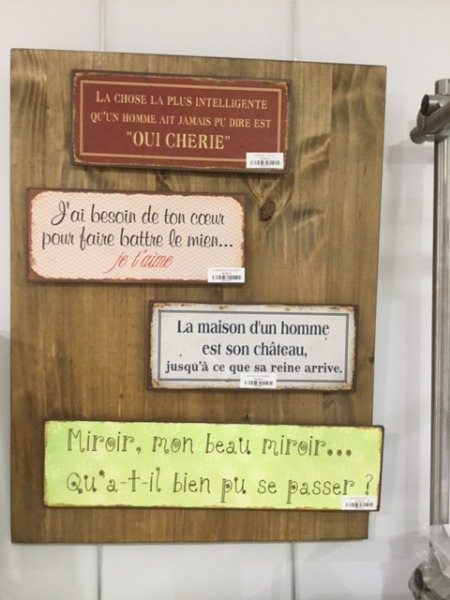 LA CHOSE LA PLUS INTELLIGENTE
QU'UN HOMME AIT JAMAIS PU DIRE EST
"OUI CHERIE"
J'ai besoin de ton cœur
pour faire battre le mien...
je t'aime
La maison d'un homme
est son château,
jusqu'à ce que sa reine arrive.
Miroir, mon beau miroir...
Qu'a-t-il bien pu se passer ?